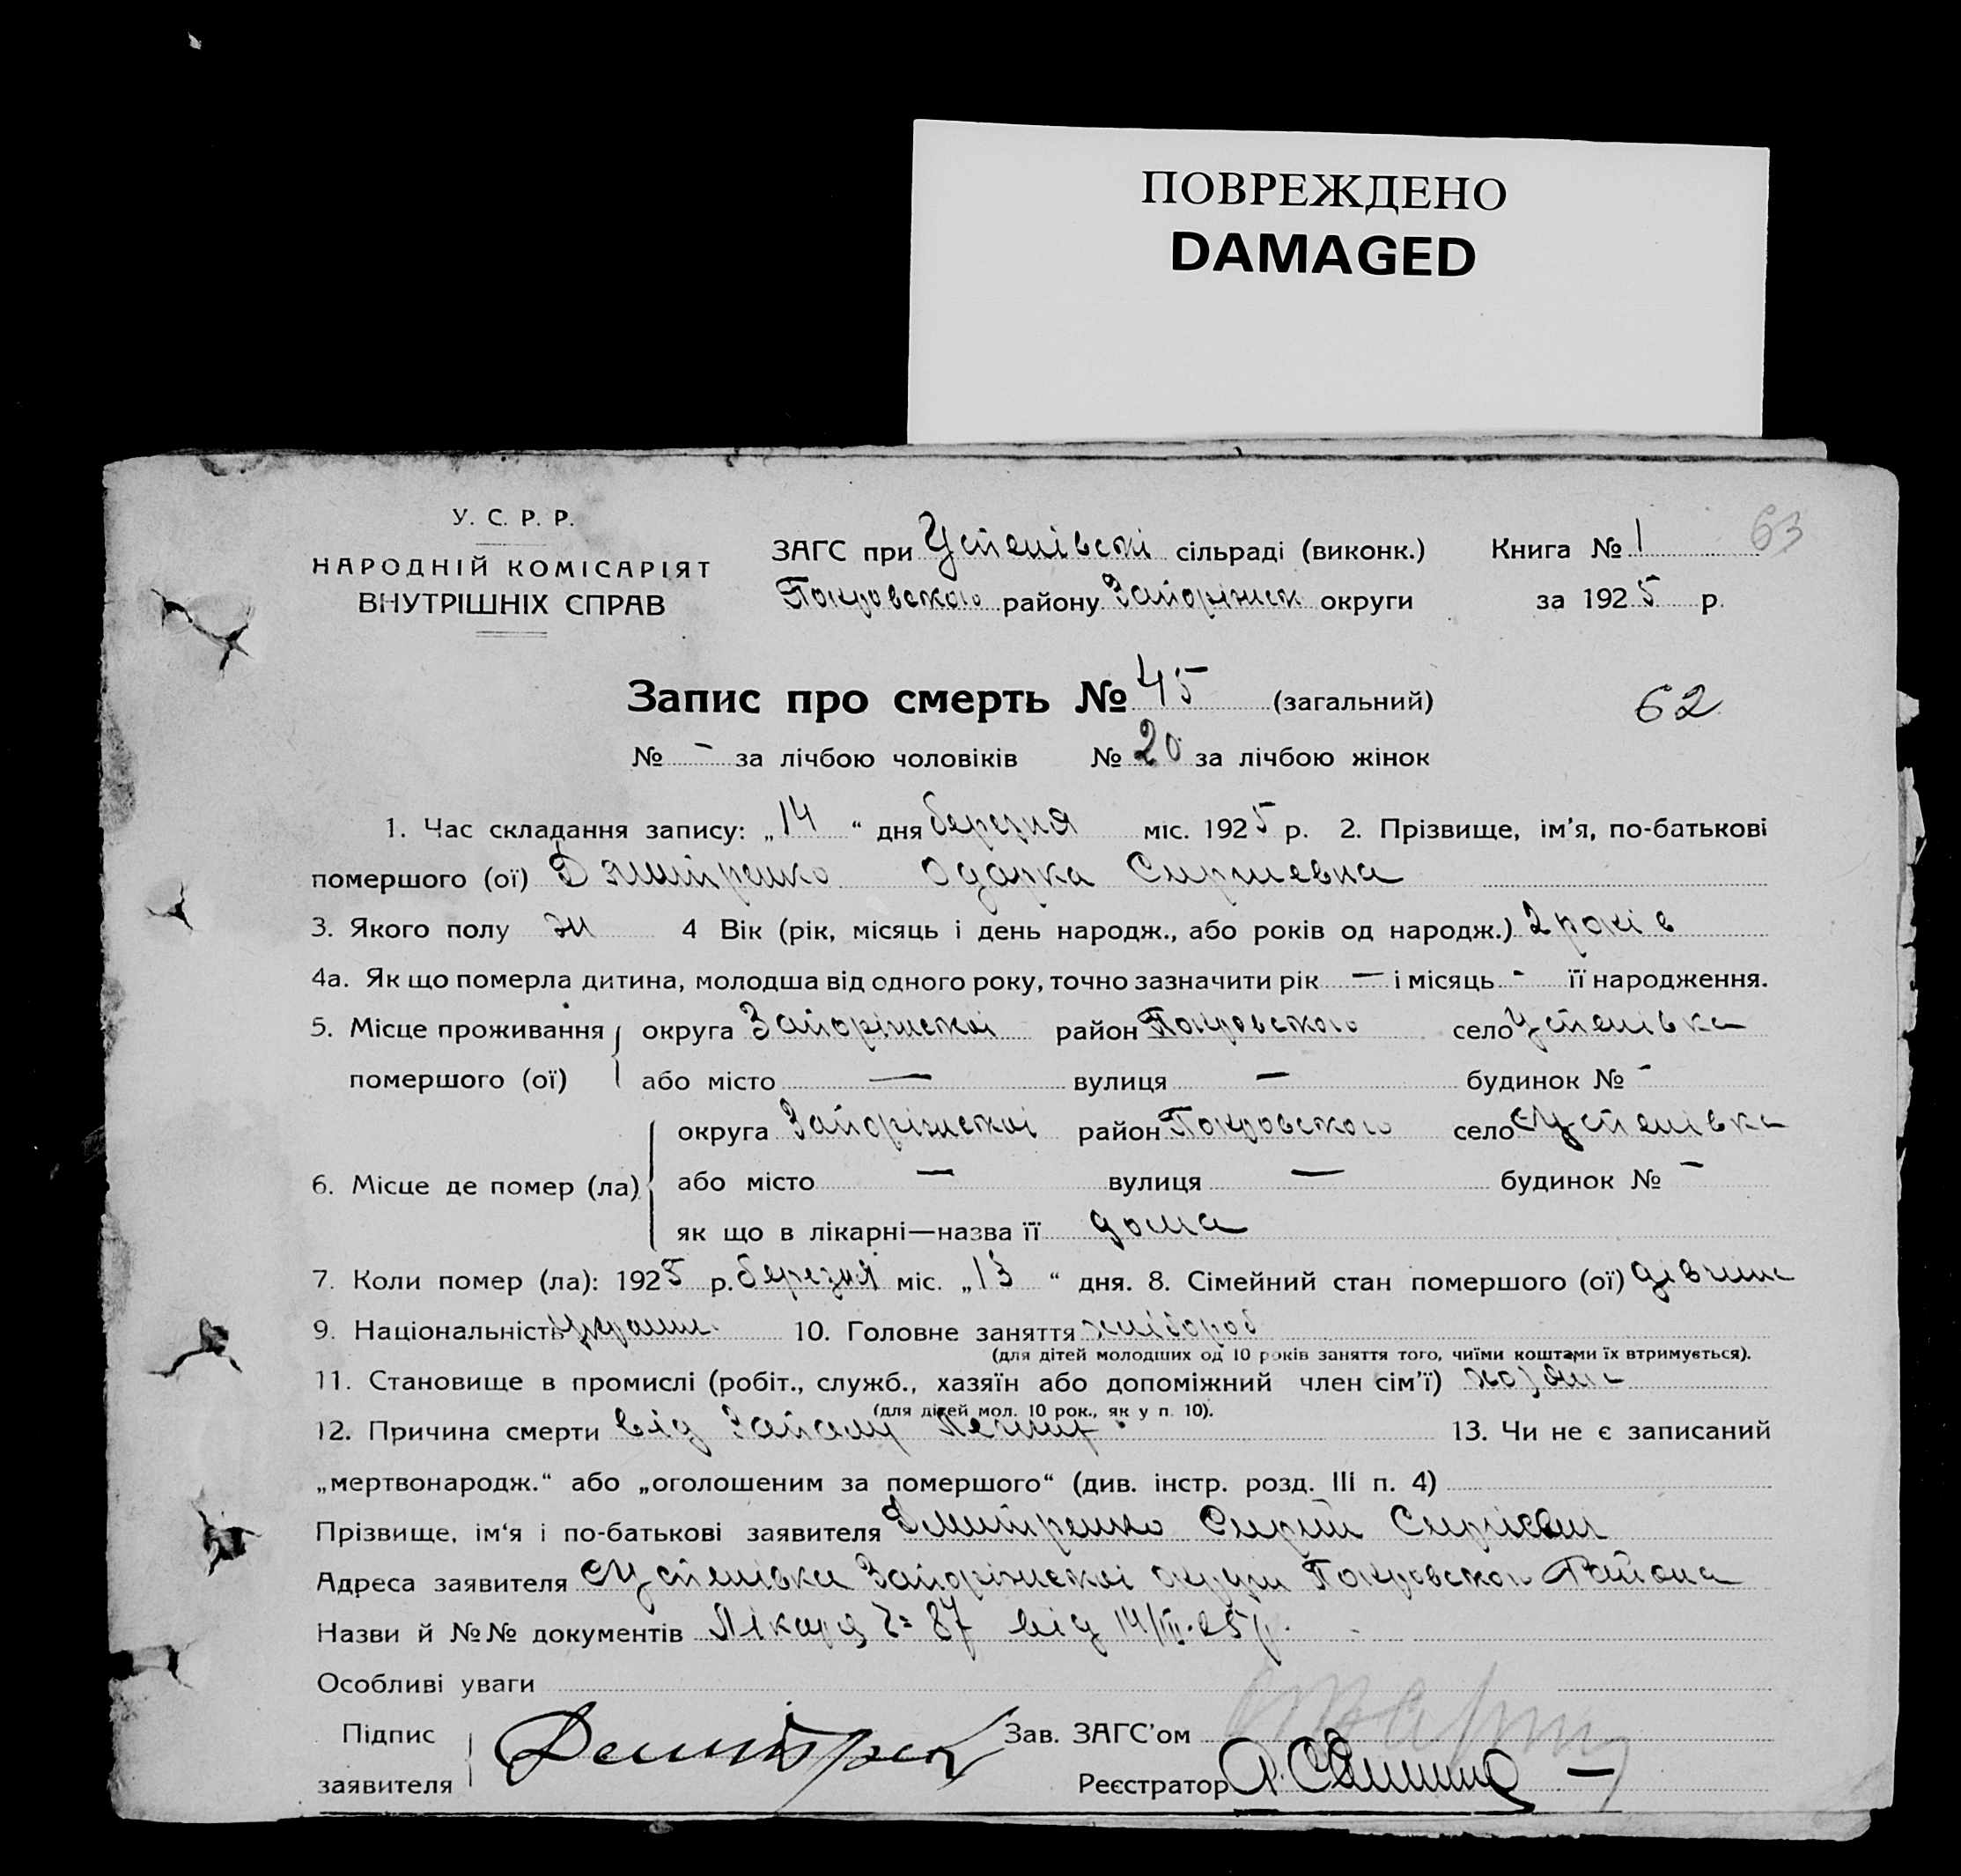 ПОВРЕЖДЕНО
DAMAGED
У. С. Р. Р.
НАРОДНІЙ КОМІСАРІЯТ
ВНУТРІШНІХ СПРАВ
ЗАГС при Успенівскі сільраді (виконк.)
Покровского району Запоріжск округи
Книга № 1
63
за 1925 р.
Запис про смерть № 45 (загальний)
62
№ - за лічбою чоловіків № 20 за лічбою жінок
1. Час складання запису: „14“ дня березня міс. 1925 р. 2. Прізвище, ім'я, по-батькові
помершого (ої) Дмитренко Одарка Сиргіевна
3. Якого полу ж 4 Вік (рік, місяць і день народж., або років од народж.) 2 років
4а. Як що померла дитина, молодша від одного року, точно зазначити рік — і місяць - її народження.
5. Місце проживання округа Запоріжскоі район Покровского село Успенівка
помершого (ої) або місто — вулиця — будинок № -
округа Запоріжскоі район Покровского село Успенівка
6. Місце де помер (ла) або місто — вулиця — будинок № -
як що в лікарні—назва її дома
7. Коли помер (ла): 1925 р. березня міс. „13“ дня. 8. Сімейний стан помершого (ої) дівчина
9. Національність Украин. 10. Головне заняття хлібороб
(для дітей молодших од 10 років заняття того, чиїми коштами їх втримується).
11. Становище в промислі (робіт., служб., хазяїн або допоміжний член сім'ї) хозяин
(для дітей мол. 10 рок., як у п. 10).
12. Причина смерти від Запалу Легких 13. Чи не є записаний
„мертвонародж.“ або „оголошеним за помершого“ (див. інстр. розд. III п. 4)
Прізвище, ім'я і по-батькові заявителя Дмитренко Сиргій
Адреса заявителя Успенівка Запоріжскоі округи Покровского Района
Назви й №№ документів Лікаря 87 від 14/III-25 р.
Особливі уваги
Підпис
заявителя
Дмитрен
Зав. ЗАГС'ом
Реєстратор